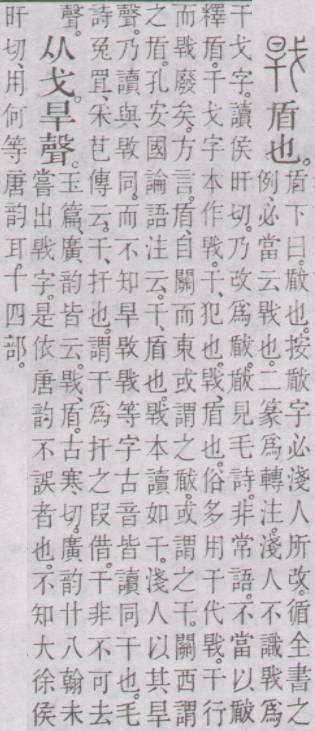 𢧢盾也。盾下曰。瞂也。按瞂字必淺人所改。循全書之
例、必當云𢧢也。二篆爲轉注。淺人不識𢧢爲
干戈字。讀侯旰切。乃改爲瞂。瞂見毛詩。非常語。不當以瞂
釋盾。干戈字本作𢧢。干、犯也。𢧢、盾也。俗多用干代𢧢。干行
而𢧢廢矣。方言。盾、自關而東或謂之瞂。或謂之干。關西謂
之盾。孔安國論語注云。干、盾也。𢧢本讀如干。淺人以其旱
聲。乃讀與㪋同。而不知旱㪋𢧢等字古音皆讀同干也。毛
詩兔罝、采芑傳云。干、扞也。謂干爲扞之叚借。干非不可去
聲。
从戈。旱聲。玉篇、廣韵皆云。𢧢、盾。古寒切。廣韵廿八翰未
嘗出𢧢字。是依唐韵不誤者也。不知大徐侯
旰切、用何等唐韵耳。十四部。